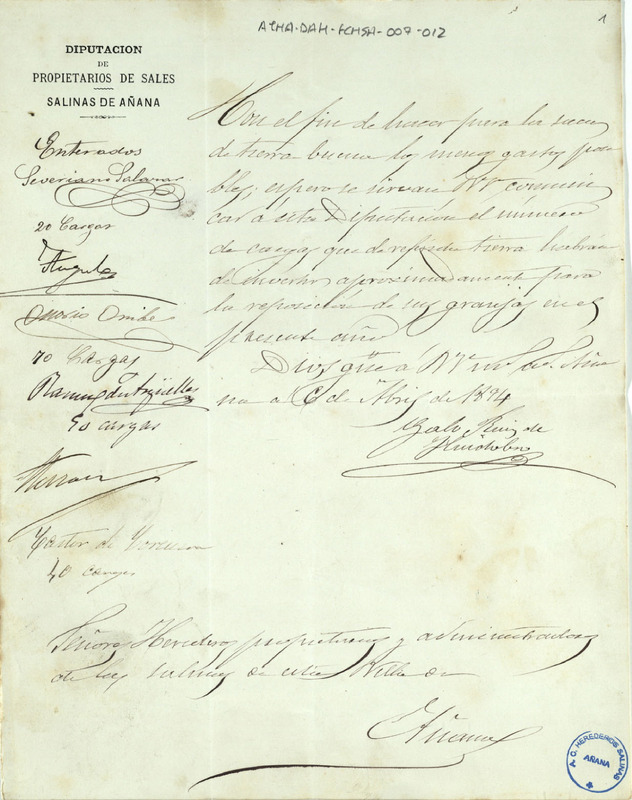 ATHA-DAH-FCHSA-007-012
1
DIPUTACION
DE
PROPIETARIOS DE SALES
SALINAS DE AÑANA
Enterados
Severiano Salazar
20 Cargas
Angulo
Onesio Oribe
70 Cargas
Ramon de Argüelles
50 cargas
Castor de
40 cargas
Con el fin de hacer para la saca
de tierra buena los menos gastos posi
bles; espero se sirvan VV. comuni
car á esta Diputación el número
de cargas que de refirida tierra habrán
de invertir aproximadamente para
la reposición de sus granjas en el
presente año
Dios gûe á VV. m. a. Aña
na a 6 de Abril de 1894
Galo Ruiz de
Huidobro
Señores Herederos propietarios y administradores
de las salinas de esta Villa de
Añana
A. C. HEREDEROS SALINAS
AÑANA